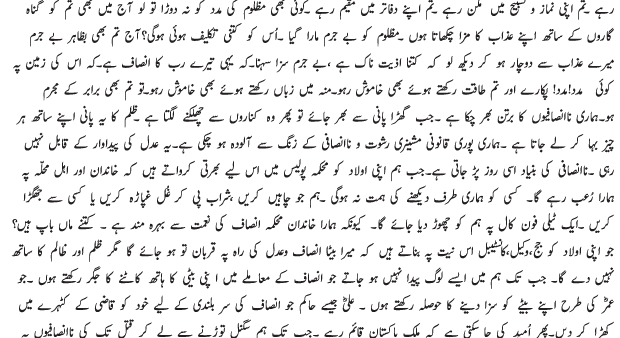 رہے ۔تم اپنی نماز و تسبیح میں مگن رہے ۔تم اپنے دفاتر میں مقیم رہے ۔کوئی بھی مظلوم کی مدد کو نہ دوڑا تو لو آج میں بھی تم کو گناہ
گاروں کے ساتھ اپنے عذاب کا مزا چکھاتا ہوں ۔مظلوم کو بے جرم مارا گیا ۔اُس کو کتنی تکلیف ہوئی ہوگی؟آج تم بھی بظاہر بے جرم
میرے عذاب سے دوچار ہو کر دیکھ لو کہ کتنا اذیت ناک ہے ،بے جرم سزا سہنا۔کہ یہی تیرے رب کا انصاف ہے۔کہ اس کی زمین پہ
کوئی مدد!مدد! پکارے اور تم طاقت رکھتے ہوئے بھی خاموش رہو۔منہ میں زباں رکھتے ہوئے بھی خاموش رہو۔تو تم بھی برابر کے مجرم
ہو۔ہماری ناانصافیوں کا برتن بھر چکا ہے ۔جب گھڑا پانی سے بھر جائے تو پھر وہ کناروں سے چھلکنے لگتا ہے ۔ظلم کا یہ پانی اپنے ساتھ ہر
چیز بہا کر لے جاتا ہے ۔ہماری پوری قانونی مشینری رشوت و ناانصافی کے زنگ سے آلودہ ہو چکی ہے۔یہ عدل کی پیداوار کے قابل نہیں
رہی ۔ناانصافی کی بنیاد اسی روز پڑ جاتی ہے۔جب ہم اپنی اولاد کو محکمہ پولیس میں اس لیے بھرتی کرواتے ہیں کہ خاندان اور اہل محلّہ پہ
ہمارا رُعب رہے گا۔ کسی کو ہماری طرف دیکھنے کی ہمت نہ ہوگی ۔ہم جو چاہیں کریں ،شراب پی کر غُل غپاڑہ کریں یا کسی سے جھگڑا
کریں ۔ایک ٹیلی فون کال پہ ہم کو چھوڑ دیا جائے گا۔ کیونکہ ہمارا خاندان محکمہ انصاف کی نعمت سے بہرہ مند ہے ۔ کتنے ماں باپ ہیں؟
جو اپنی اولاد کو جج،وکیل،کانسٹیبل اس نیت پہ بناتے ہیں کہ میرا بیٹا انصاف وعدل کی راہ پہ قربان تو ہو جائے گا مگر ظلم اور ظالم کا ساتھ
نہیں دے گا۔ جب تک ہم میں ایسے لوگ پیدا نہیں ہو جاتے جو انصاف کے معاملے میں اپنی بیٹی کا ہاتھ کاٹنے کا جگر رکھتے ہوں ۔جو
عمرؓ کی طرح اپنے بیٹے کو سزا دینے کا حوصلہ رکھتے ہوں ۔ علیؓ جیسے حاکم جو انصاف کی سر بلندی کے لیے خود کو قاضی کے کٹہرے میں
کھڑا کر دیں۔پھر اُمید کی جا سکتی ہے کہ ملک پاکستان قائم رہے ۔جب تک ہم سگنل توڑنے سے لے کر قتل تک کی ناانصافیوں پہ